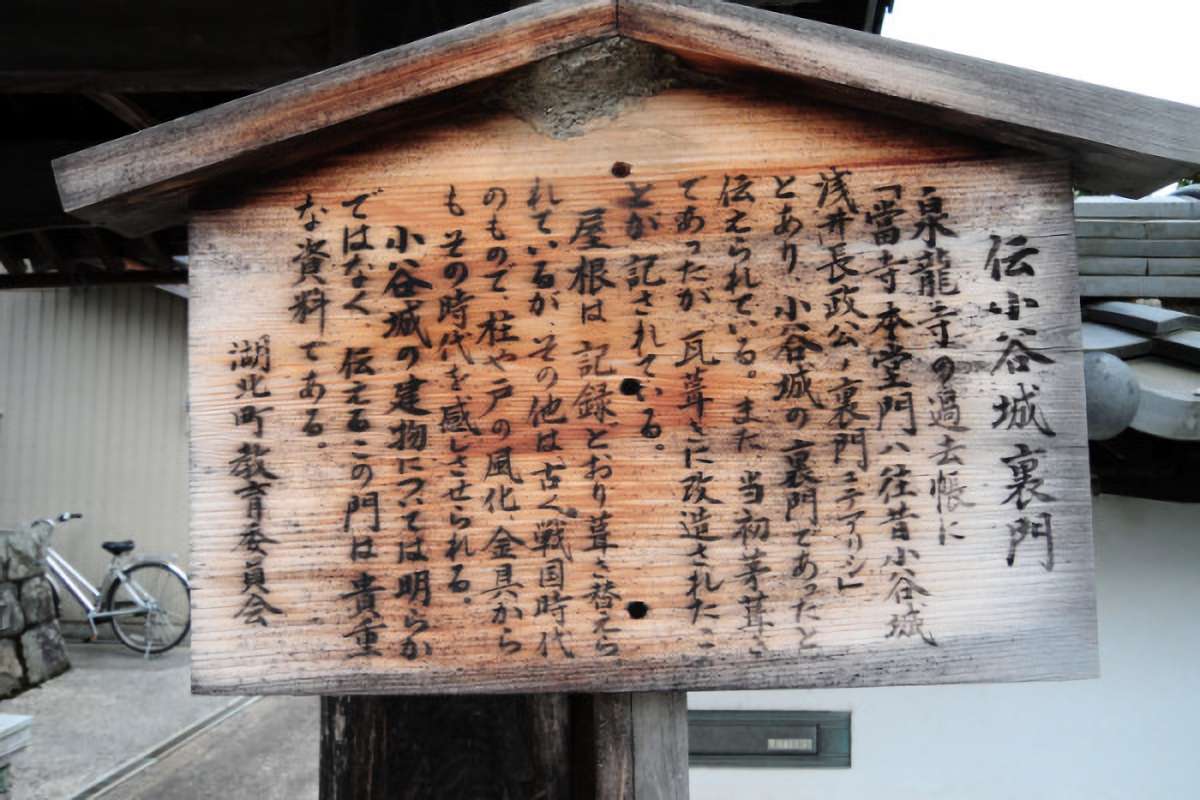 伝小谷城裏門
泉龍寺の過去帳に
「當寺本堂門ハ往昔小谷城
浅井長政公ノ裏門ニテアリシ」
とあり、小谷城の裏門であったと
伝えられている。また、当初茅葺き
であったが、瓦葺きに改造されたこ
とが記されている。
屋根は、記録どおり葺き替えら
れているが、その他は、古く戦国時代
のもので、柱や戸の風化、金具から
も、その時代を感じさせられる。
小谷城の建物については明らか
ではなく、伝えるこの門は貴重
な資料である。
湖北町教育委員会